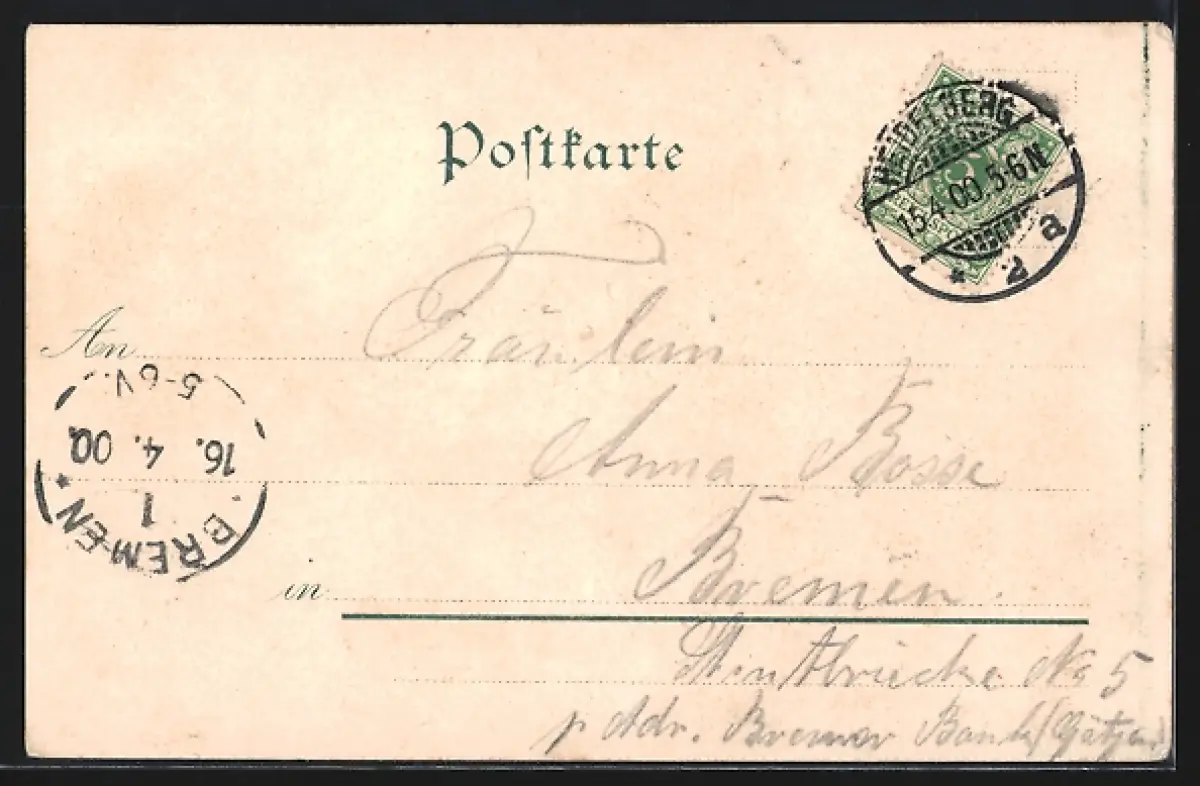 Postkarte
HEIDELBERG
15.4.00.5-6N
* 2 a
An Fräulein
Anna Bosse
5-6V.
16. 4. 00
1
BREMEN *
in Bremen.
Stintbrücke No 5
p Adr. Bremer Bank